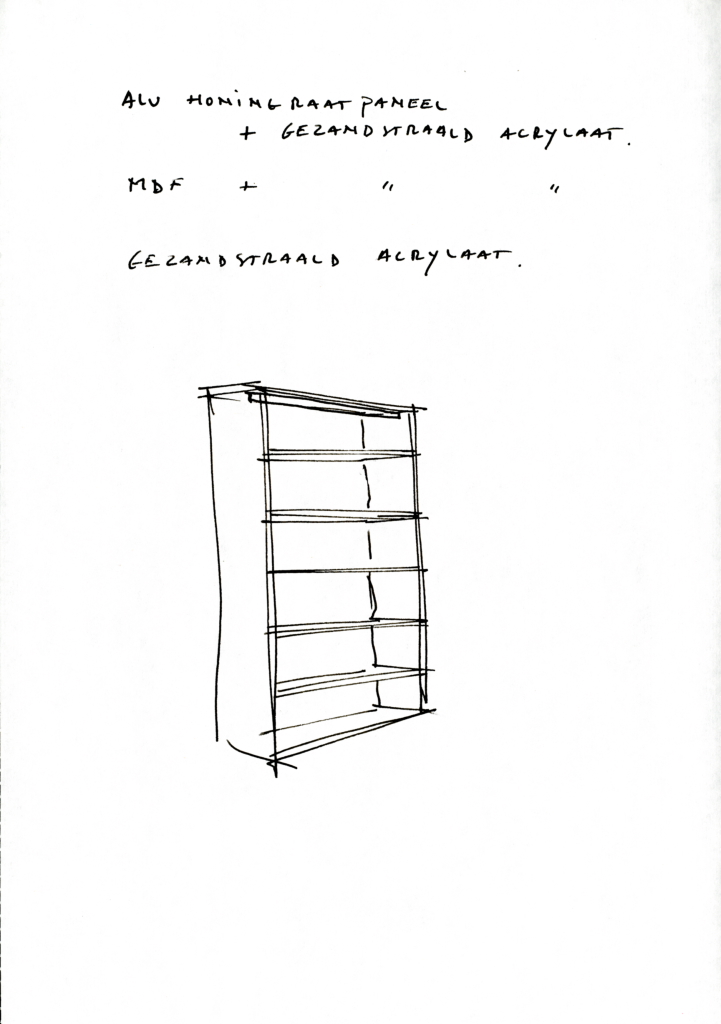 ALU HONINGRAAT PANEEL
+ GEZANDSTRAALD ACRYLAAT.
MDF + " "
GEZANDSTRAALD ACRYLAAT.